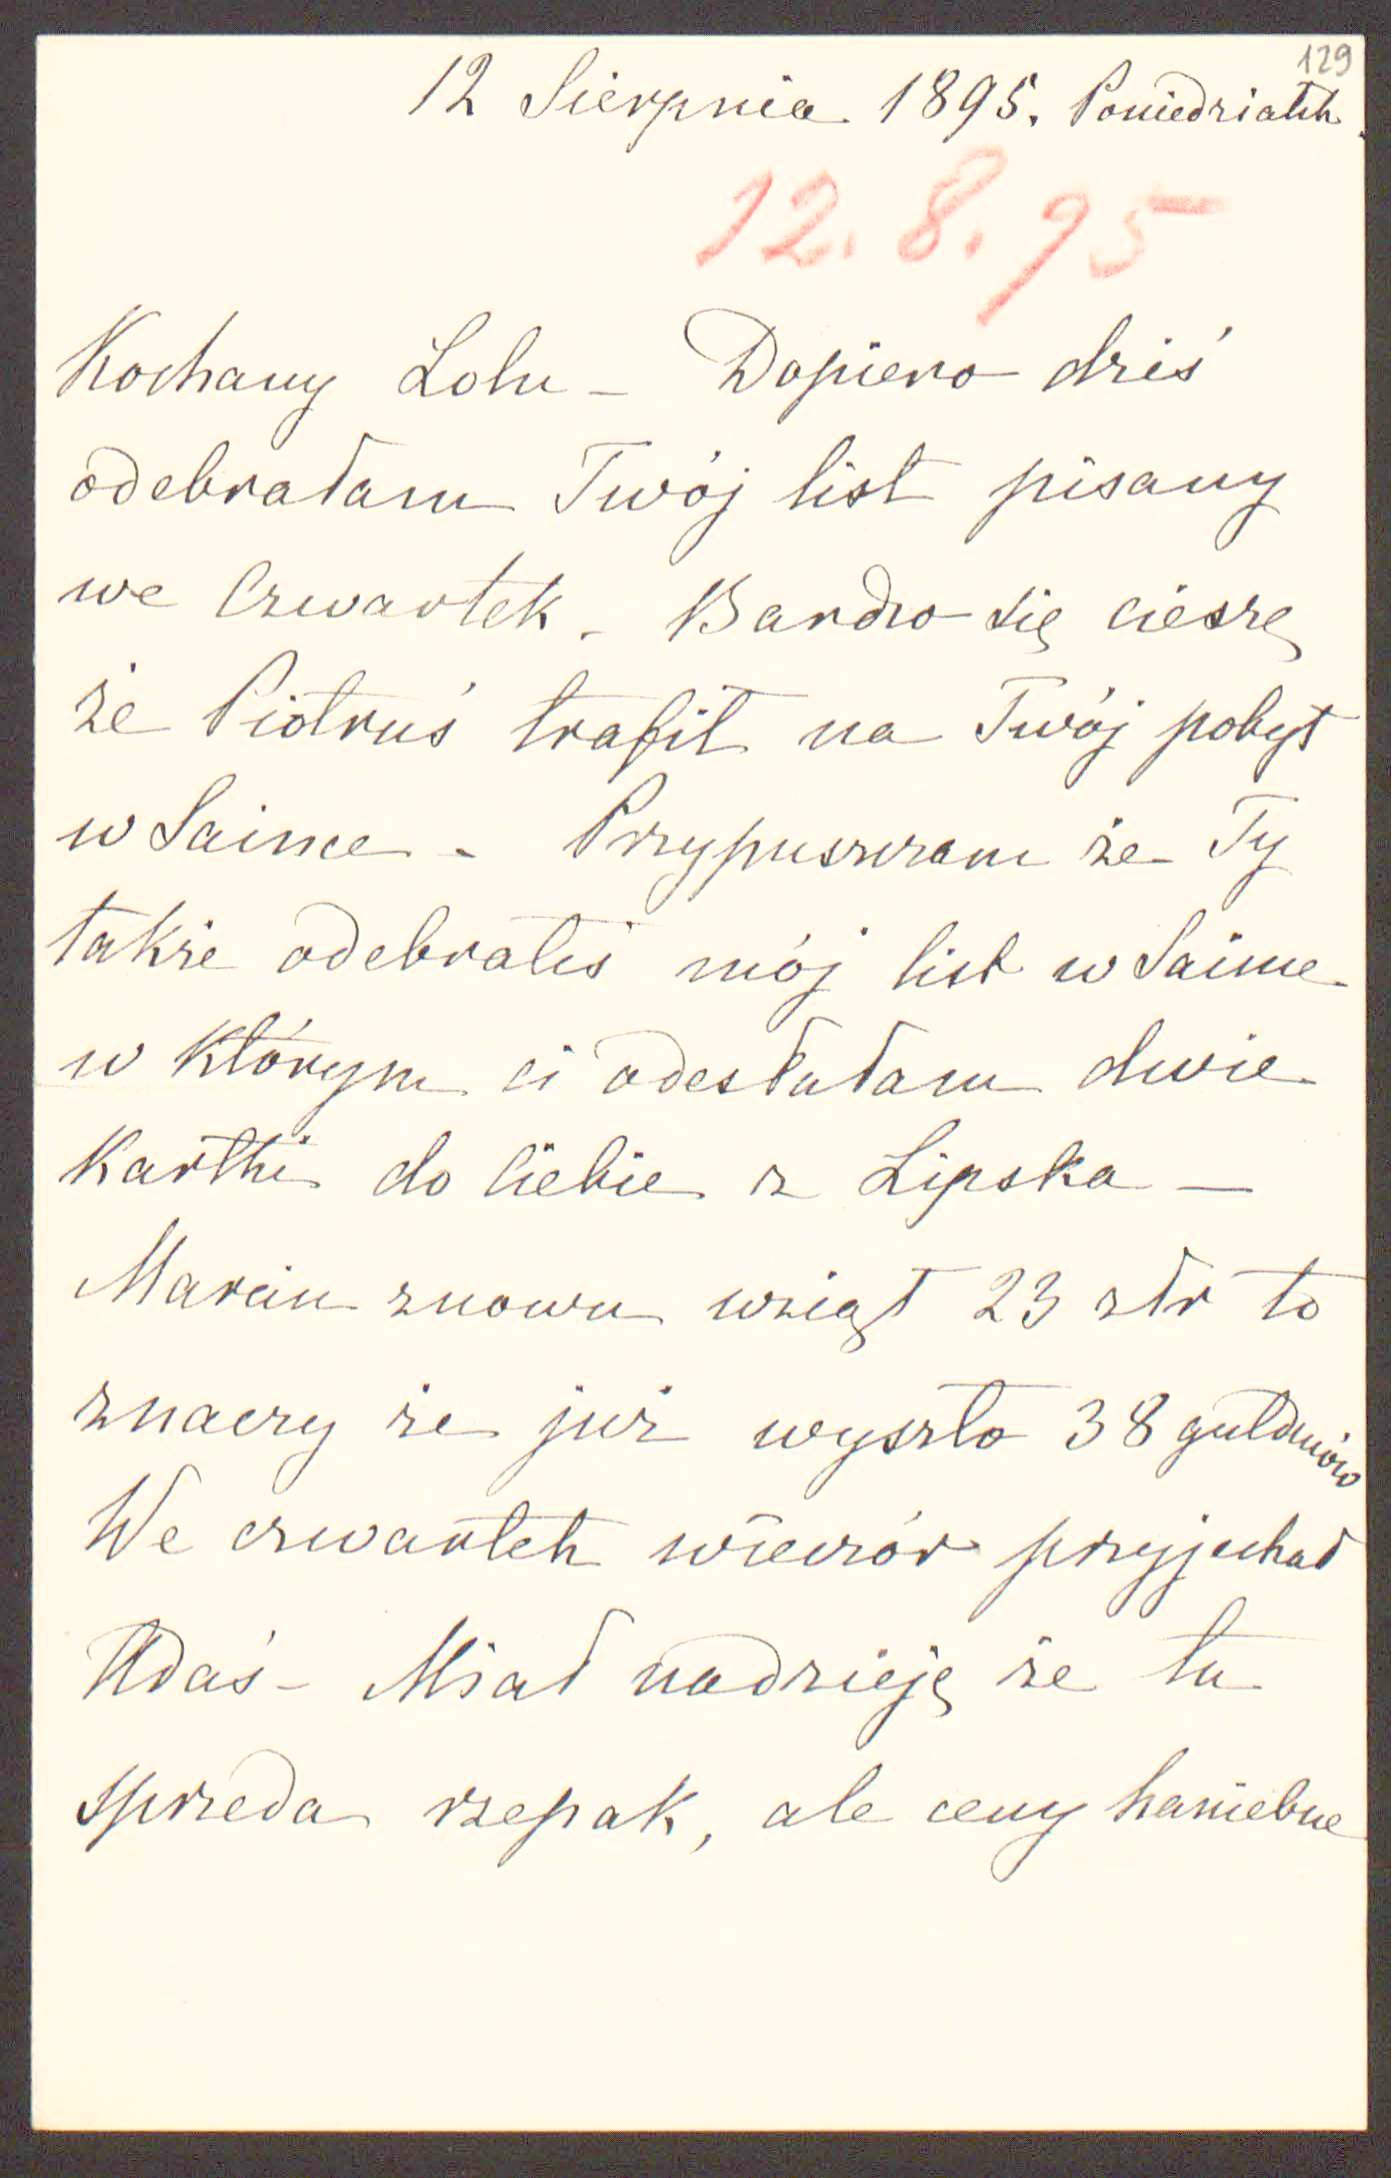 129
12 Sierpnia 1895. Poniedziałek.
12. 8. 95
Kochany Lolu – Dopiero dziś
odebrałam Twój list pisany
we Czwartek. Bardzo się cieszę
że Piotruś trafił na Twój pobyt
w Saince. Przypuszczam że Ty
także odebrałeś mój list w Saince
w którym ci odesłałam dwie
kartki do Ciebie z Lipska –
Marcin znowu wziął 23 złr to
znaczy że już wyszło 38 guldenów
We czwartek wieczór przyjechał
Udaś – Miał nadzieję że tu
sprzeda rzepak, ale ceny haniebne